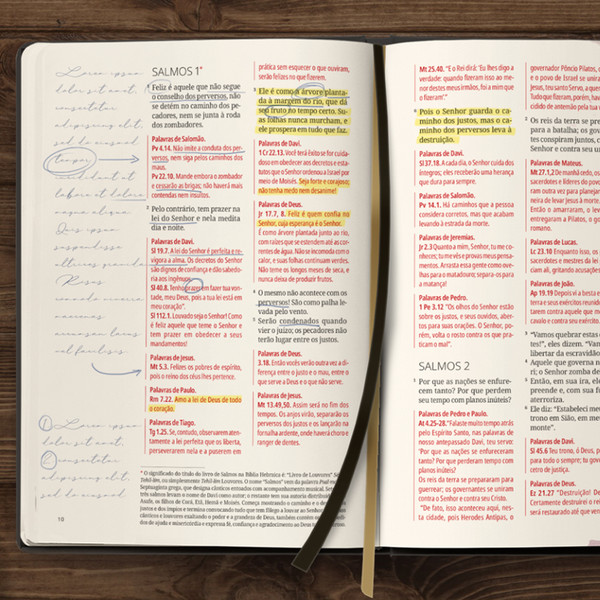 Lorem ipsum
dolor sit amet,
consectetur
adipiscing elit,
sed do eiusmod
tempor
incididunt ut
labore et dolore
magna aliqua.
Quis ipsum
suspendisse
ultrices gravida.
Risus
commodo viverra
maecenas
accumsan lacus
vel facilisis.
1 Lorem ipsum
dolor sit amet,
2 consectetur
adipiscing elit,
sed do eiusmod
10
SALMOS 1*
1 Feliz é aquele que não segue
o conselho dos perversos, não
se detém no caminho dos pe-
cadores, nem se junta à roda
dos zombadores.
Palavras de Salomão.
Pv 4.14. Não imite a conduta dos per-
versos, nem siga pelos caminhos dos
maus.
Pv 22.10. Mande embora o zombador
e cessarão as brigas; não haverá mais
contendas nem insultos.
2 Pelo contrário, tem prazer na
lei do Senhor e nela medita
dia e noite.
Palavras de Davi.
Sl 19.7. A lei do Senhor é perfeita e re-
vigora a alma. Os decretos do Senhor
são dignos de confiança e dão sabedo-
ria aos ingênuos.
Sl 40.8. Tenho prazer em fazer tua von-
tade, meu Deus, pois a tua lei está em
meu coração".
Sl 112.1. Louvado seja o Senhor! Como
é feliz aquele que teme o Senhor e
tem prazer em obedecer a seus
mandamentos!
Palavras de Jesus.
Mt 5.3. Felizes os pobres de espírito,
pois o reino dos céus lhes pertence.
Palavras de Paulo.
Rm 7.22. Amo a lei de Deus de todo
o coração.
Palavras de Tiago.
Tg 1.25. Se, contudo, observarem aten-
tamente a lei perfeita que os liberta,
perseverarem nela e a puserem em
prática sem esquecer o que ouviram,
serão felizes no que fizerem.
3 Ele é como a árvore planta-
da à margem do rio, que dá
seu fruto no tempo certo. Su-
as folhas nunca murcham, e
ele prospera em tudo que faz.
Palavras de Davi.
1 Cr 22.13. Você terá êxito se for cuida-
doso em obedecer aos decretos e esta-
tutos que o Senhor ordenou a Israel por
meio de Moisés. Seja forte e corajoso;
não tenha medo nem desanime!
Palavras de Deus.
Jr 17.7, 8. Feliz é quem confia no
Senhor, cuja esperança é o Senhor.
É como árvore plantada junto ao rio,
com raízes que se estendem até as cor-
rentes de água. Não se incomoda com o
calor, e suas folhas continuam verdes.
Não teme os longos meses de seca, e
nunca deixa de produzir frutos.
4 O mesmo não acontece com os
perversos! São como palha le-
vada pelo vento.
5 Serão condenados quando
vier o juízo; os pecadores não
terão lugar entre os justos.
Palavras de Deus.
3.18. Então vocês verão outra vez a di-
ferença entre o justo e o mau, entre o
que serve a Deus e o que não serve.
Palavras de Jesus.
Mt 13.49,50. Assim será no fim dos
tempos. Os anjos virão, separarão os
perversos dos justos e os lançarão na
fornalha ardente, onde haverá choro e
ranger de dentes.
* O significado do título do livro de Salmos na Bíblia Hebraica é: "Livro de Louvores"
Tehilîm, ou simplesmente Tehilîm Louvores. O nome "Salmos" vem da palavra
Septuaginta grega, que designa cânticos entoados com acompanhamento musical.
três salmos levam o nome de Davi como autor; o restante tem sua autoria
Asafe, os filhos de Corá, Etã, Hemã e Moisés. Começa mostrando o caminho e o
justos e dos ímpios e termina convocando tudo que tem fôlego a louvar ao Senhor.
cânticos e louvores exaltando o poder e a grandeza de Deus, também contém
dos de ajuda e misericórdia e expressa Hi, confiança e agradecimento ao Deus
Mt 25.40. "E o Rei dirá: 'Eu lhes digo a
verdade: quando fizeram isso ao me-
nor destes meus irmãos, foi a mim que
o fizeram'."
6 Pois o Senhor guarda o ca-
minho dos justos, mas o ca-
minho dos perversos leva à
destruição.
Palavras de Davi.
Sl 37.18. A cada dia, o Senhor cuida dos
íntegros; eles receberão uma herança
que dura para sempre.
Palavras de Salomão.
Pv 14.1. Há caminhos que a pessoa
considera corretos, mas que acabam
levando à estrada da morte.
Palavras de Jeremias.
Jr 2.3 Quanto a mim, Senhor, tu me co-
nheces; tu me vês e provas meus pensa-
mentos. Arrasta essa gente como ove-
lhas para o matadouro; separa-os para
a matança!
Palavras de Pedro.
1 Pe 3.12 "Os olhos do Senhor estão
sobre os justos, e seus ouvidos, aber-
tos para suas orações. O Senhor, po-
rém, volta o rosto contra os que pra-
ticam o mal".
SALMOS 2
1 Por que as nações se enfure-
cem tanto? Por que perdem
seu tempo com planos inúteis?
Palavras de Pedro e Paulo.
At 4.25-28. "Falaste muito tempo atrás
pelo Espírito Santo, nas palavras de
nosso antepassado Davi, teu servo:
'Por que as nações se enfureceram
tanto? Por que perderam tempo com
planos inúteis?
Os reis da terra se prepararam para
guerrear; os governantes se uniram
contra o Senhor e contra seu Cristo.
"De fato, isso aconteceu aqui, nes-
ta cidade, pois Herodes Antipas, o
governador Pôncio Pilatos,
e o povo de Israel se uniram
Jesus, teu santo Servo, a quem
Tudo que fizeram, porém, havia
cidido de antemão pela tua
2 Os reis da terra se prepararam
para a batalha; os governan-
tes conspiram juntos,
contra o Senhor e contra seu
Palavras de Mateus.
Mt 27.1,2 De manhã cedo, os
sacerdotes e líderes do povo
ram outra vez para planejar
Então o amarraram, o
entregaram a Pilatos, o
romano.
Palavras de Lucas.
Lc 23.10 Enquanto isso, os
sacerdotes e mestres da lei
ciam ali, gritando acusações
Palavras de João.
Ap 19.19 Depois vi a besta e
terra e seus exércitos reunidos
tarem contra aquele que montava
cavalo e contra seu exército.
3 "Vamos quebrar estas
tes!", eles dizem. "Vamos
libertar da escravidão
4 Aquele que governa nos
ri; o Senhor zomba de
5 Então, em sua ira, ele
preende e, com sua fúria,
aterroriza.
6 Ele diz: "Estabeleci meu
trono em Sião, em meu
monte".
Palavras de Davi.
Sl 45.6 Teu trono, ó Deus,
para todo o sempre; tu
cetro de justiça.
Palavras de Deus.
Ez 21.27 "Destruição!
Certamente destruirei o reino
será restaurado até que